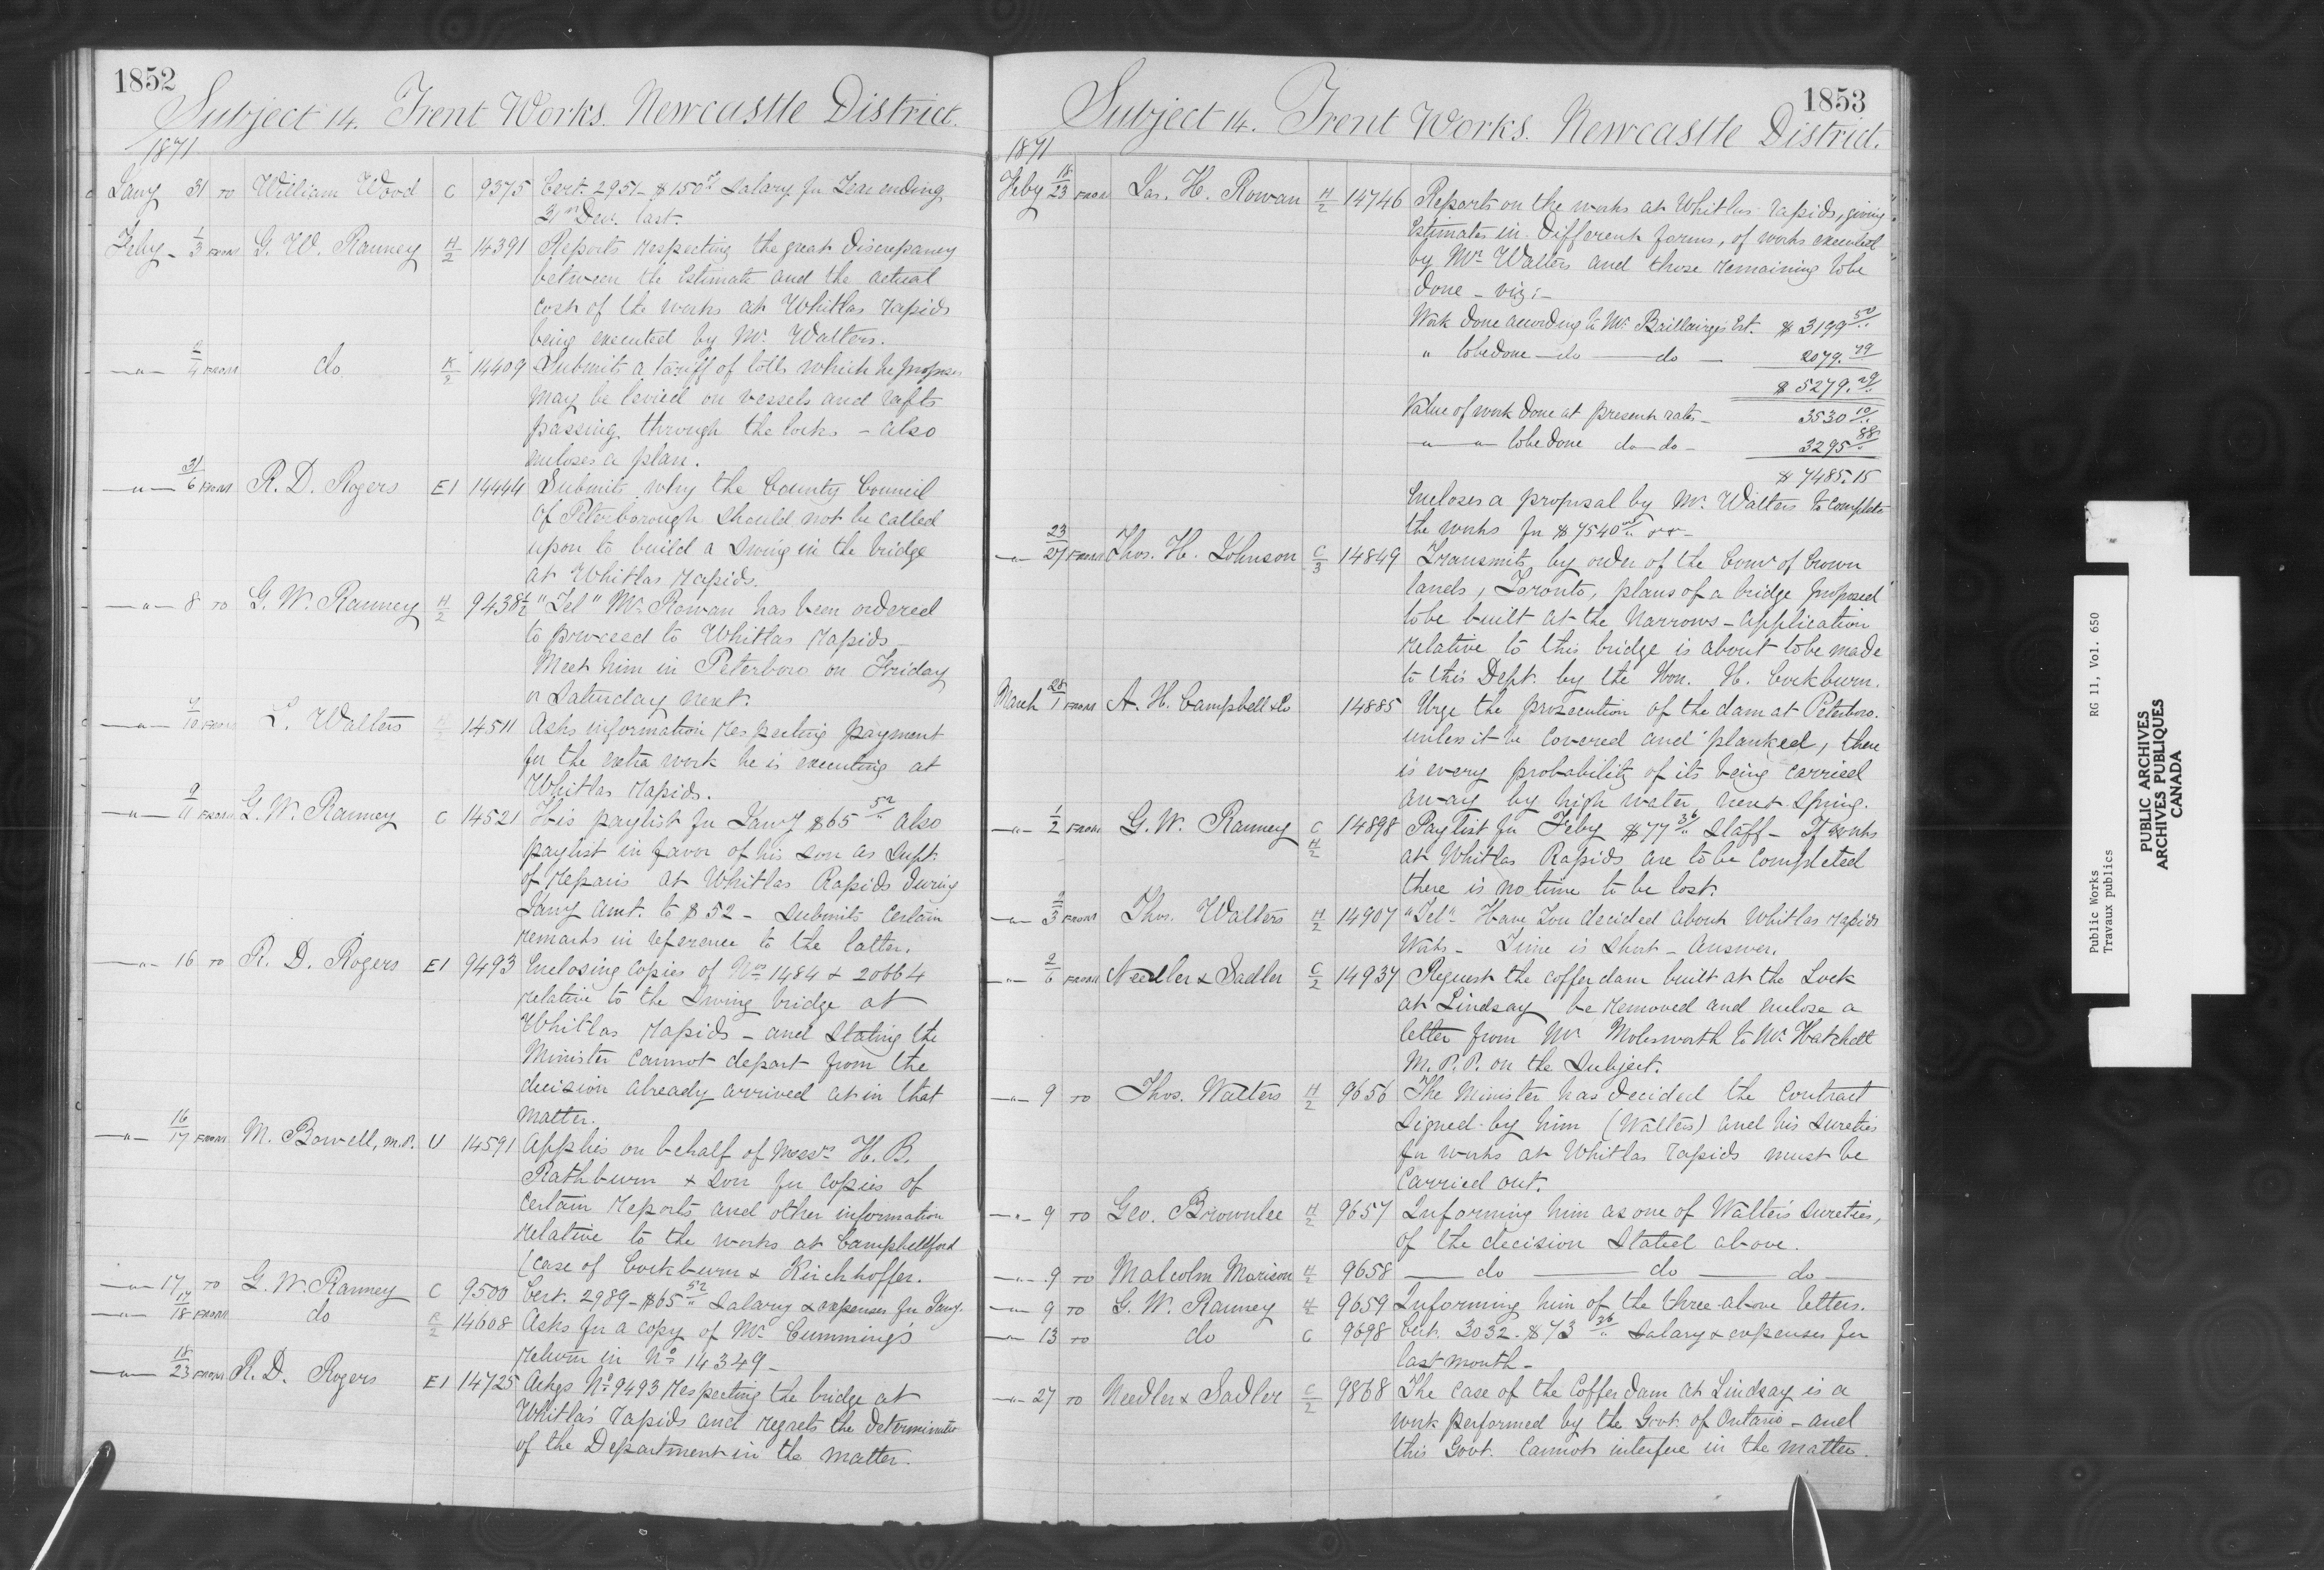 1852
Subject 14. Trent Works. Newcastle District.
1871
Jany 31 TO William Wood C 9375 Cert. 2951 - $150.. Salary for Year ending
31st Decr. last.
Feby - 1/3 FROM G. W. Ranney H/2 14391 Reports respecting the great discrepancy
between the Estimate and the actual
cost of the works at Whitlas rapids
being executed by Mr. Walters.
—"— 2/4 FROM do K/2 14409 Submits a tariff of tolls which he proposes
may be levied on vessels and rafts
passing through the locks - also
encloses a plan.
—"— 31/6 FROM R. D. Rogers E1 14444 Submits why the County Council
of Peterborough should not be called
upon to build a Swing in the bridge
at Whitlas rapids.
—"— 8 TO G. W. Ranney H/2 9438½ "Tel" Mr. Rowan has been ordered
to proceed to Whitlas rapids -
Meet him in Peterboro on Friday
or Saturday next.
—"— 9/10 FROM L. Walters 14511 Asks information respecting payment
for the extra work he is executing at
Whitlas Rapids.
—"— 9/11 FROM G. W. Ranney C 14521 His paylist for Jany $65 52/.. also
paylist in favor of his Son as Supt.
of repairs at Whitlas Rapids during
Jany amt. to $52 - Submits certain
remarks in reference to the latter.
—"— 16 TO R. D. Rogers E1 9493 Enclosing copies of Nos 1484 & 20664
relative to the Swing bridge at
Whitlas rapids - and Stating the
Minister cannot depart from the
decision already arrived at in that
matter.
—"— 16/17 FROM M. Bowell, M.P. U 14591 Applies on behalf of Messrs H. B.
Rathburn & Son for copies of
certain reports and other information
relative to the works at Campbellford
(case of Cockburn & Kirchhoffer.
—"— 17 TO G. W. Ranney C 9500 Cert. 2989 - $65 52/.. Salary & expenses for Jany.
—"— 17/18 FROM do 14608 Asks for a copy of Mr. Cumming's
return in No 14349 -
—"— 18/23 FROM R. D. Rogers E1 14725 Ackgs No 9493 respecting the bridge at
Whitla's rapids and regrets the determinatn
of the Department in the matter.
1853
Subject 14. Trent Works. Newcastle District.
1871
Feby 18/23 FROM Jas. H. Rowan H/2 14746 Reports on the works at Whitlas rapids, giving
Estimates in different forms, of works executed
by Mr. Walters and those remaining to be
done - viz: -
Work done according to Mr. Baillairge's Est. $ 3199 50/..
" to be done — do — do — 2079. 79
$ 5279. 29/..
Value of work done at present rates - 3530 10/..
—"— "— to be done do - do - 3295 88
$ 7485.15
Encloses a proposal by Mr. Walters to complete
the works for $7540
—"— 23/27 FROM Thos. H. Johnson C/3 14849 Transmits by order of the Comr of Crown
lands, Toronto, plans of a bridge proposed
to be built at the Narrows - Application
relative to this bridge is about to be made
to this Dept. by the Hon. H. Cockburn.
March 28/1 FROM A. H. Campbell & Co 14885 Urge the prosecution of the dam at Peterboro.
unless it be covered and planked, there
is every probability of its being carried
away by high water next Spring.
—"— 1/2 FROM G. W. Ranney C H/2 14898 Paylist for Feby $77 36/.. Staff - If works
at Whitlas Rapids are to be completed
there is no time to be lost.
—"— 2/3 FROM Thos. Walters H/2 14907 "Tel" Have You decided about Whitlas rapids
Works - Time is Short - Answer.
—"— 2/6 FROM Needler & Sadler C/2 14937 Request the coffer dam built at the Lock
at Lindsay be removed and enclose a
letter from Mr Molesworth to Mr. Hatchett
M.P.P. on the Subject.
—"— 9 TO Thos. Walters H/2 9656 The Minister has decided the contract
Signed by him (Walters) and his Sureties
for works at Whitlas rapids must be
carried out.
—"— 9 TO Geo. Brownlee H/2 9657 Informing him as one of Walter's Sureties,
of the decision Stated above.
—"— 9 TO Malcolm Morison H/2 9658 — do — do — do —
—"— 9 TO G. W. Ranney H/2 9659 Informing him of the three above letters.
—"— 13 TO do C 9698 Cert. 3032. $73 36/.. Salary & expenses for
last month -
—"— 27 TO Needler & Sadler C/2 9868 The case of the Coffer dam at Lindsay is a
work performed by the Govt. of Ontario - and
this Govt. cannot interfere in the matter.
Public Works RG 11, Vol. 650
Travaux publics
PUBLIC ARCHIVES
ARCHIVES PUBLIQUES
CANADA